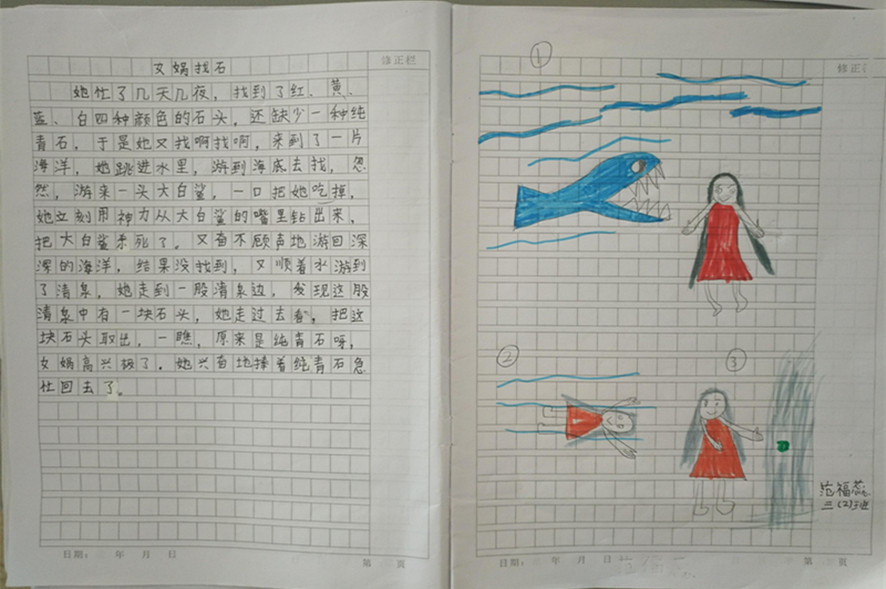 修正栏
女娲找石
她忙了几天几夜，找到了红、黄、
蓝、白四种颜色的石头，还缺少一种纯
青石，于是她又找啊找啊，来到了一片
海洋，她跳进水里，游到海底去找，忽
然，游来一头大白鲨，一口把她吃掉，
她立刻用神力从大白鲨的嘴里钻出来，
把大白鲨杀死了。又奋不顾声地游回深
深的海洋，结果没找到，又顺着水游到
了清泉，她走到一股清泉边，发现这股
清泉中有一块石头，她走过去看，把这
块石头取出，一瞧，原来是纯青石呀，
女娲高兴极了，她兴奋地捧着纯青石急
忙回去了。
日期： 年 月 日
第 页
①
修正
②
③
范福蕊
三(2)班
日期： 年 月 日
第 页